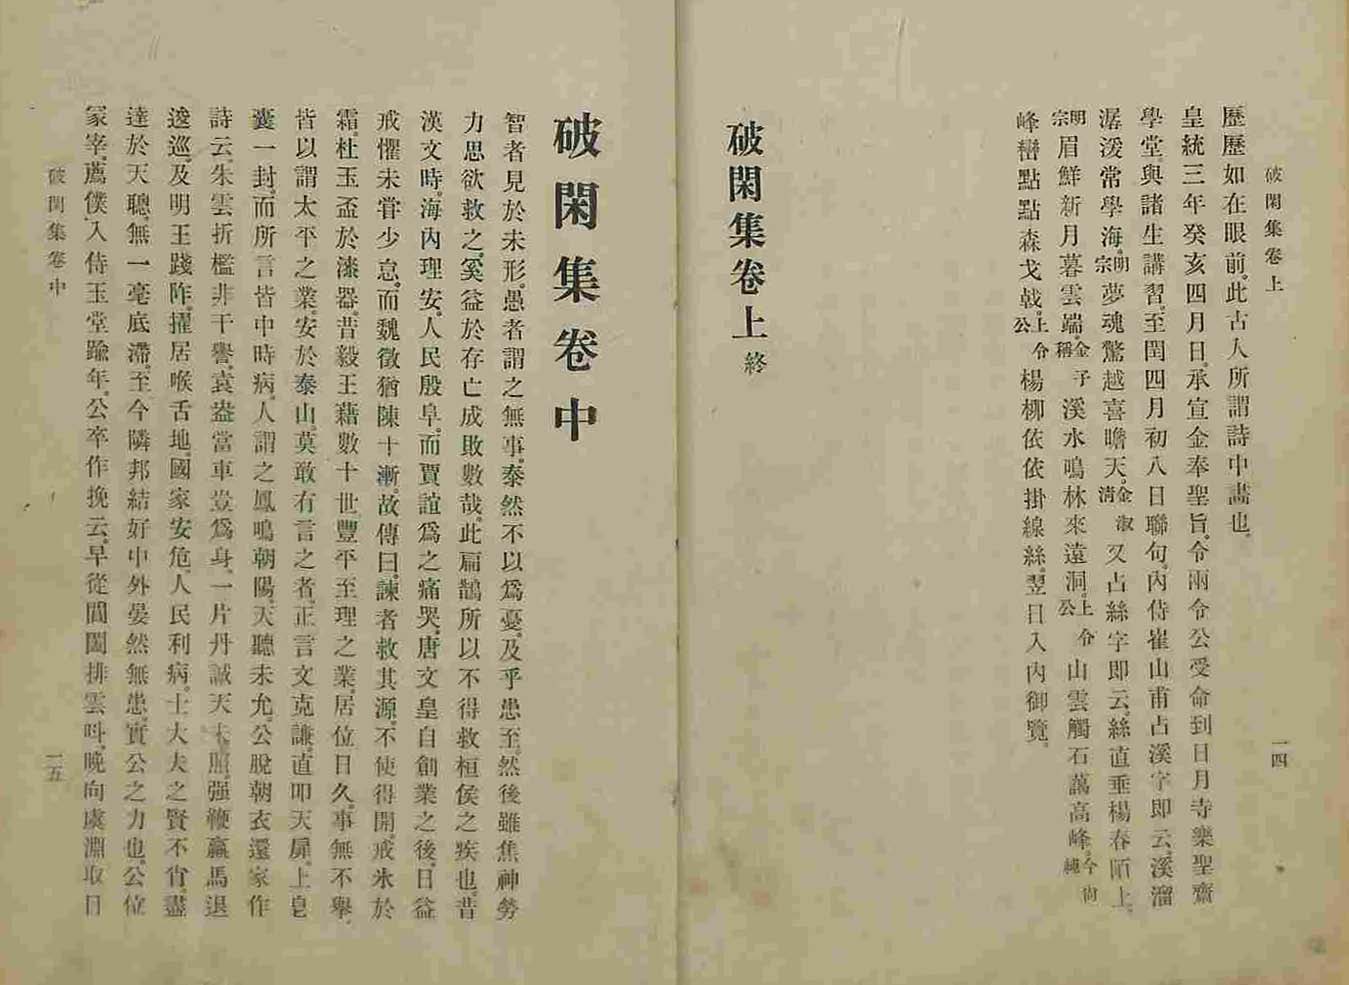 破閑集卷上
一四
歷歷如在眼前。此古人所謂詩中畵也。
皇統三年癸亥四月日。承宣金奉聖旨。令兩令公受命到日月寺樂聖齋
學堂。與諸生講習。至閏四月初八日聯句。內侍崔山甫占溪字即云。溪溜
潺湲常學海。明宗夢魂驚越喜瞻天。金淑清又占絲字即云。絲直垂楊春陌上。
明宗眉鮮新月暮雲端。金子稱溪水鳴林來遠洞。上令公山雲觸石藹高峰。今尚純
峰巒點點森戈戟。上令公楊柳依依掛線絲。翌日入內御覽。
破閑集卷上終
破閑集卷中
智者見於未形。愚者謂之無事。泰然不以爲憂。及乎患至。然後雖焦神勞
力思欲救之。奚益於存亡成敗數哉。此扁鵲所以不得救桓侯之疾也。昔
漢文時。海內理安。人民殷阜。而賈誼爲之痛哭。唐文皇自創業之後。日益
戒懼未甞少怠。而魏徵猶陳十漸。故傳曰。諫者救其源。不使得開。戒氷於
霜。杜玉盃於漆器。昔毅王藉數十世豐平至理之業。居位日久。事無不擧。
皆以謂太平之業。安於泰山。莫敢有言之者。正言文克謙。直叩天扉。上皂
囊一封。而所言皆中時病。人謂之鳳鳴朝陽。天聽未允。公脫朝衣還家作
詩云。朱雲折檻非干譽。袁盎當車豈爲身。一片丹誠天未照。强鞭羸馬退
逡巡。及明王踐阼。擢居喉舌地。國家安危。人民利病。士大夫之賢不肖。盡
達於天聽。無一毫底滯。至今隣邦結好中外晏然無患。實公之力也。公位
冢宰。薦僕入侍玉堂踰年。公卒作挽云。早從閶闔排雲叫。晚向虞淵取日
破閑集卷中
一五